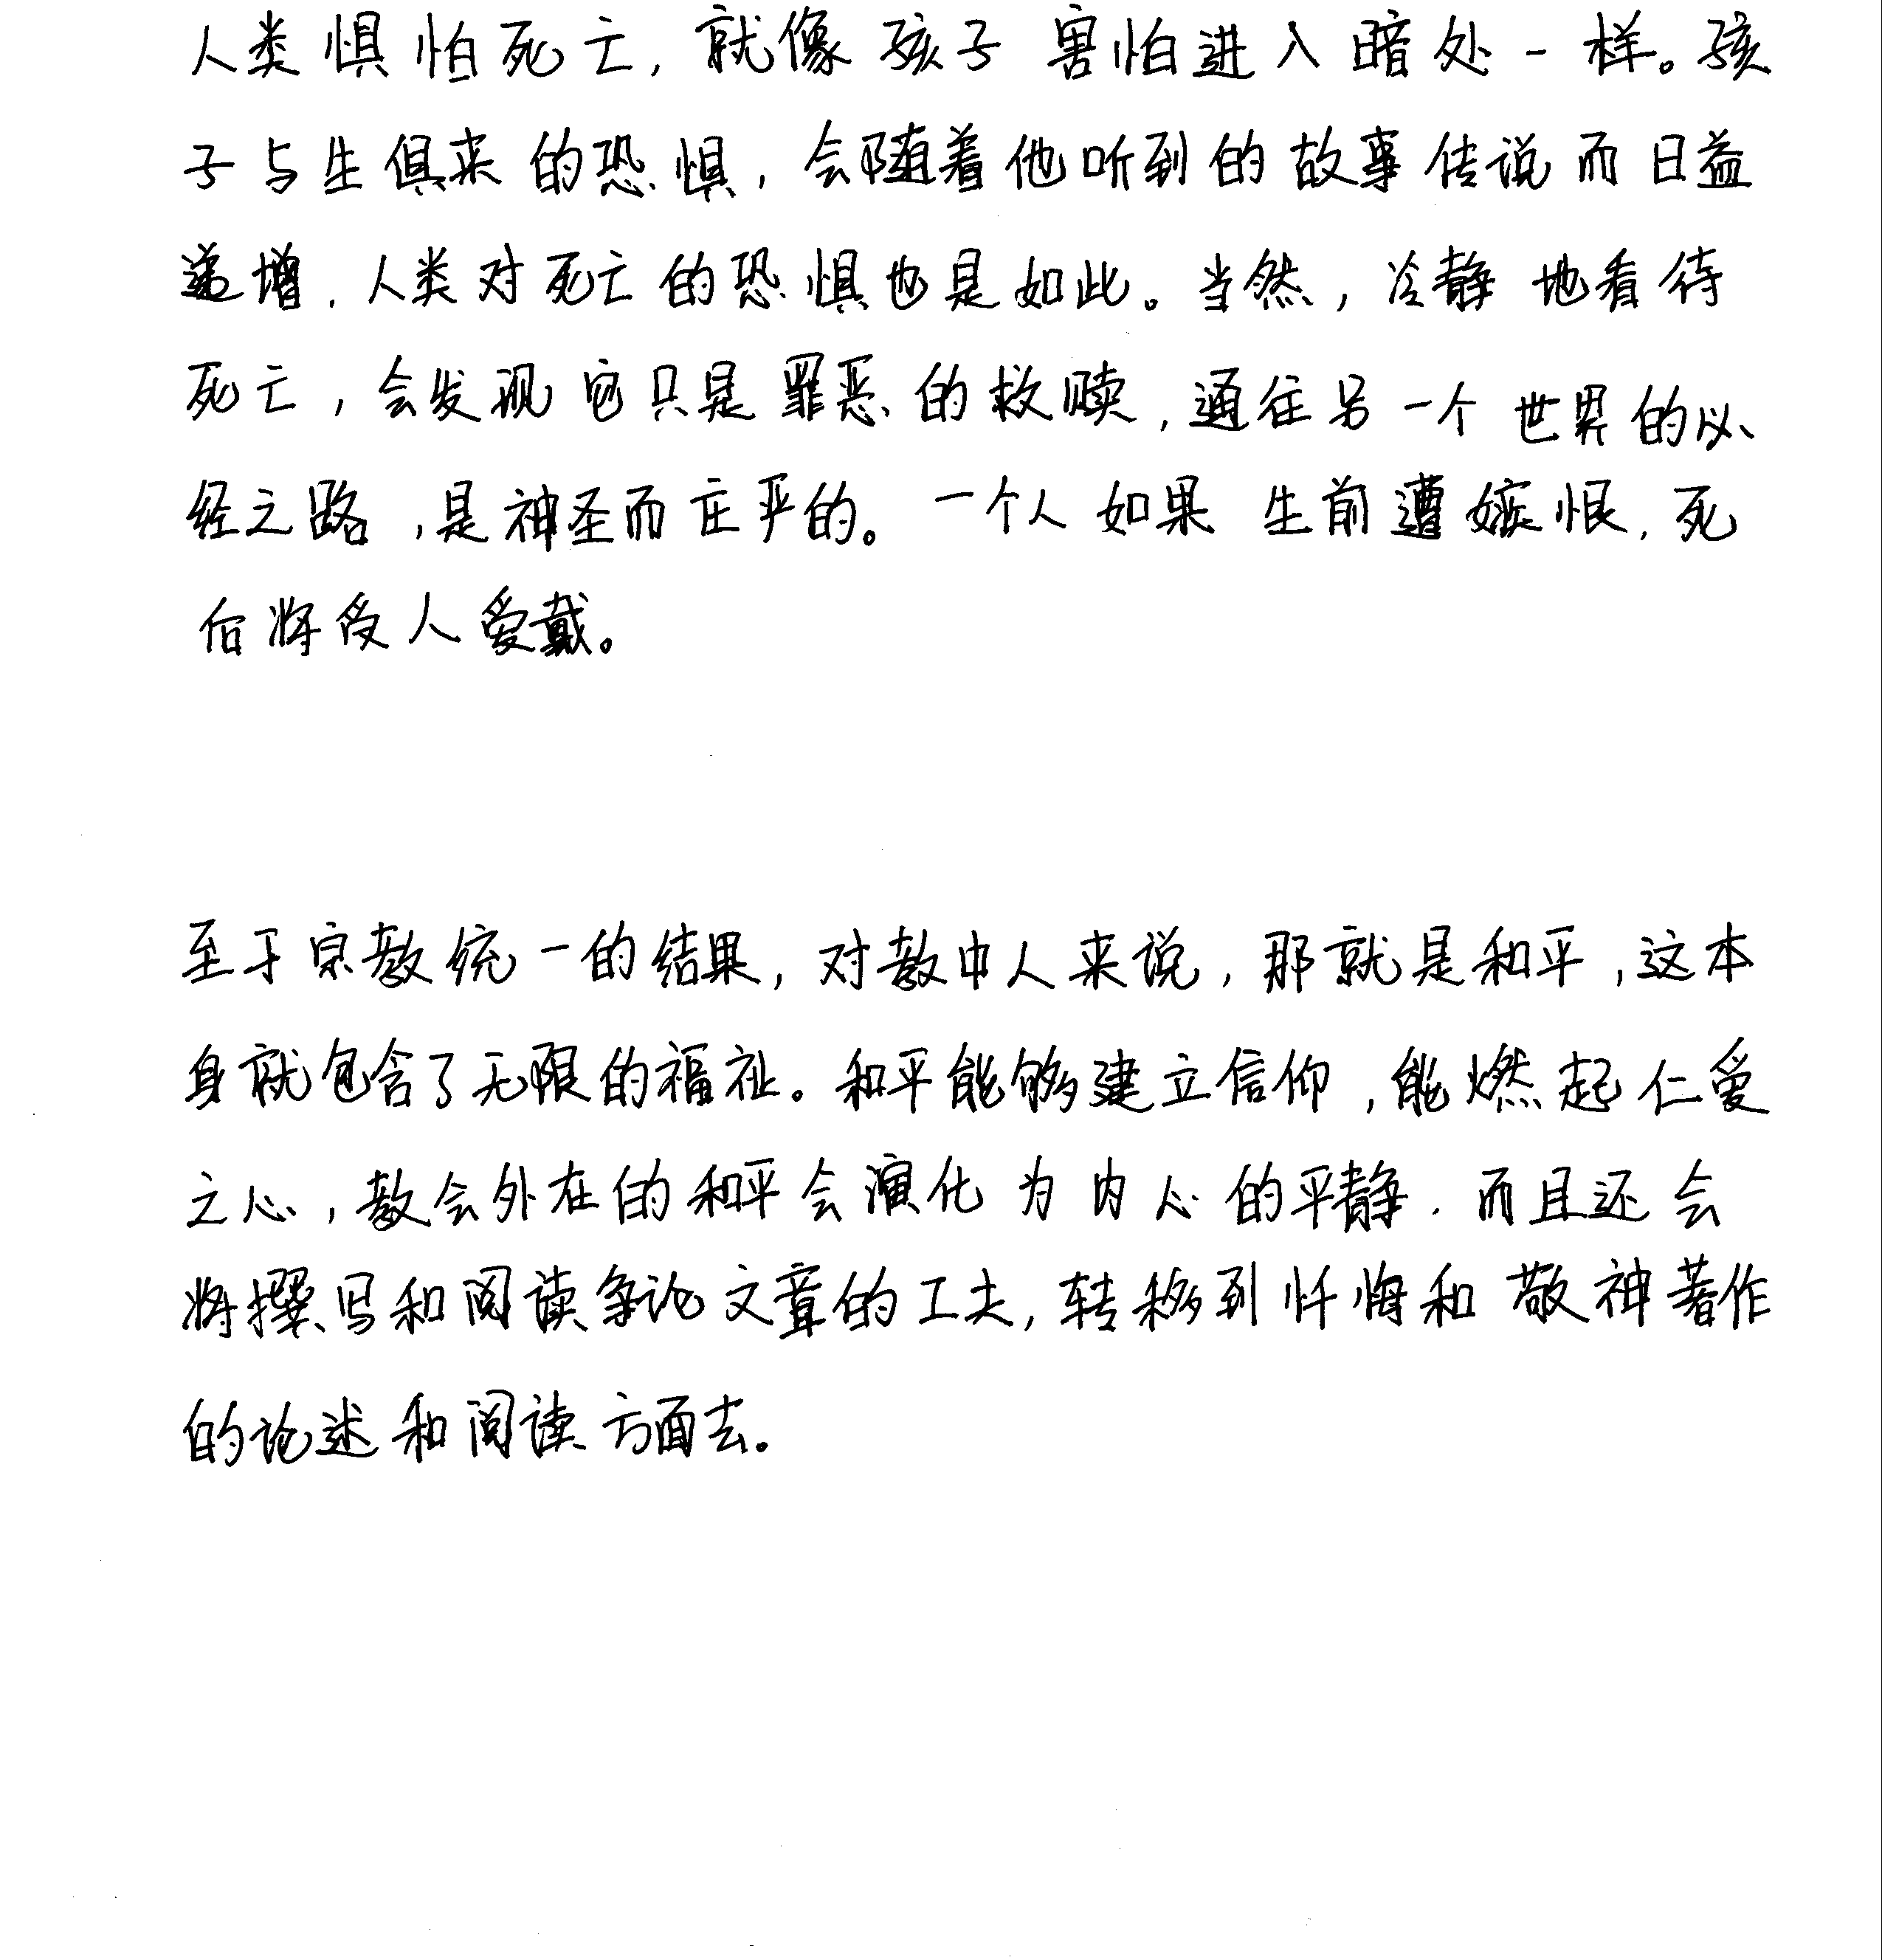 人类惧怕死亡，就像孩子害怕进入暗处一样。孩
子与生俱来的恐惧，会随着他听到的故事传说而日益
递增，人类对死亡的恐惧也是如此。当然，冷静地看待
死亡，会发现它只是罪恶的救赎，通往另一个世界的必
经之路，是神圣而庄严的。一个人如果生前遭嫉恨，死
后将受人爱戴。
至于宗教统一的结果，对教中人来说，那就是和平，这本
身就包含了无限的福祉。和平能够建立信仰，能燃起仁爱
之心，教会外在的和平会演化为内心的平静．而且还会
将撰写和阅读争论文章的工夫，转移到忏悔和敬神著作
的论述和阅读方面去。